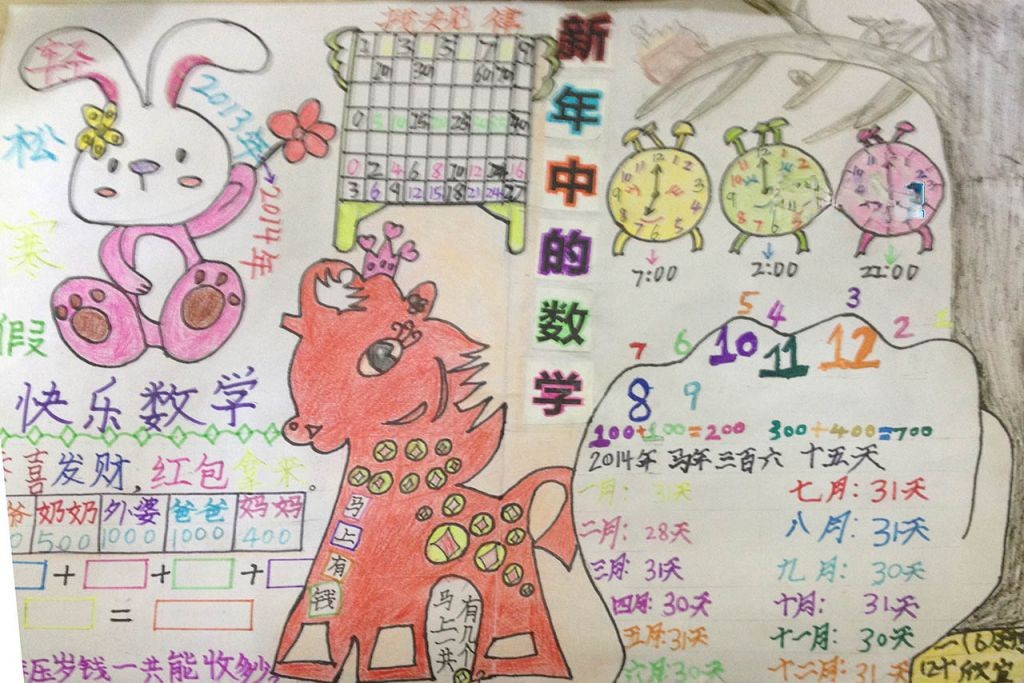 轻
松
寒
假
2013年
2014年
快乐数学
喜发财,红包拿来。
奶奶 外婆 爸爸 妈妈
500 1000 1000 400
+ + +
=
压岁钱一共能收多少
找规律
2 3 5 7 9
20 30 60 70
0 5 10 15 20 25 30 35 40
0 2 4 6 8 10 12 14 16
3 6 9 12 15 18 21 24 27
马
上
有
钱
马上一共
有几个
新
年
中
的
数
学
7:00 2:00 22:00
1 2 3 4 5 6 7 8 9 10 11 12
100+100=200 300+400=700
2014年 马年三百六十五天
一月: 31天 七月: 31天
二月: 28天 八月: 31天
三月: 31天 九月: 30天
四月: 30天 十月: 31天
五月: 31天 十一月: 30天
六月: 30天 十二月: 31天
二(6)
欣宜